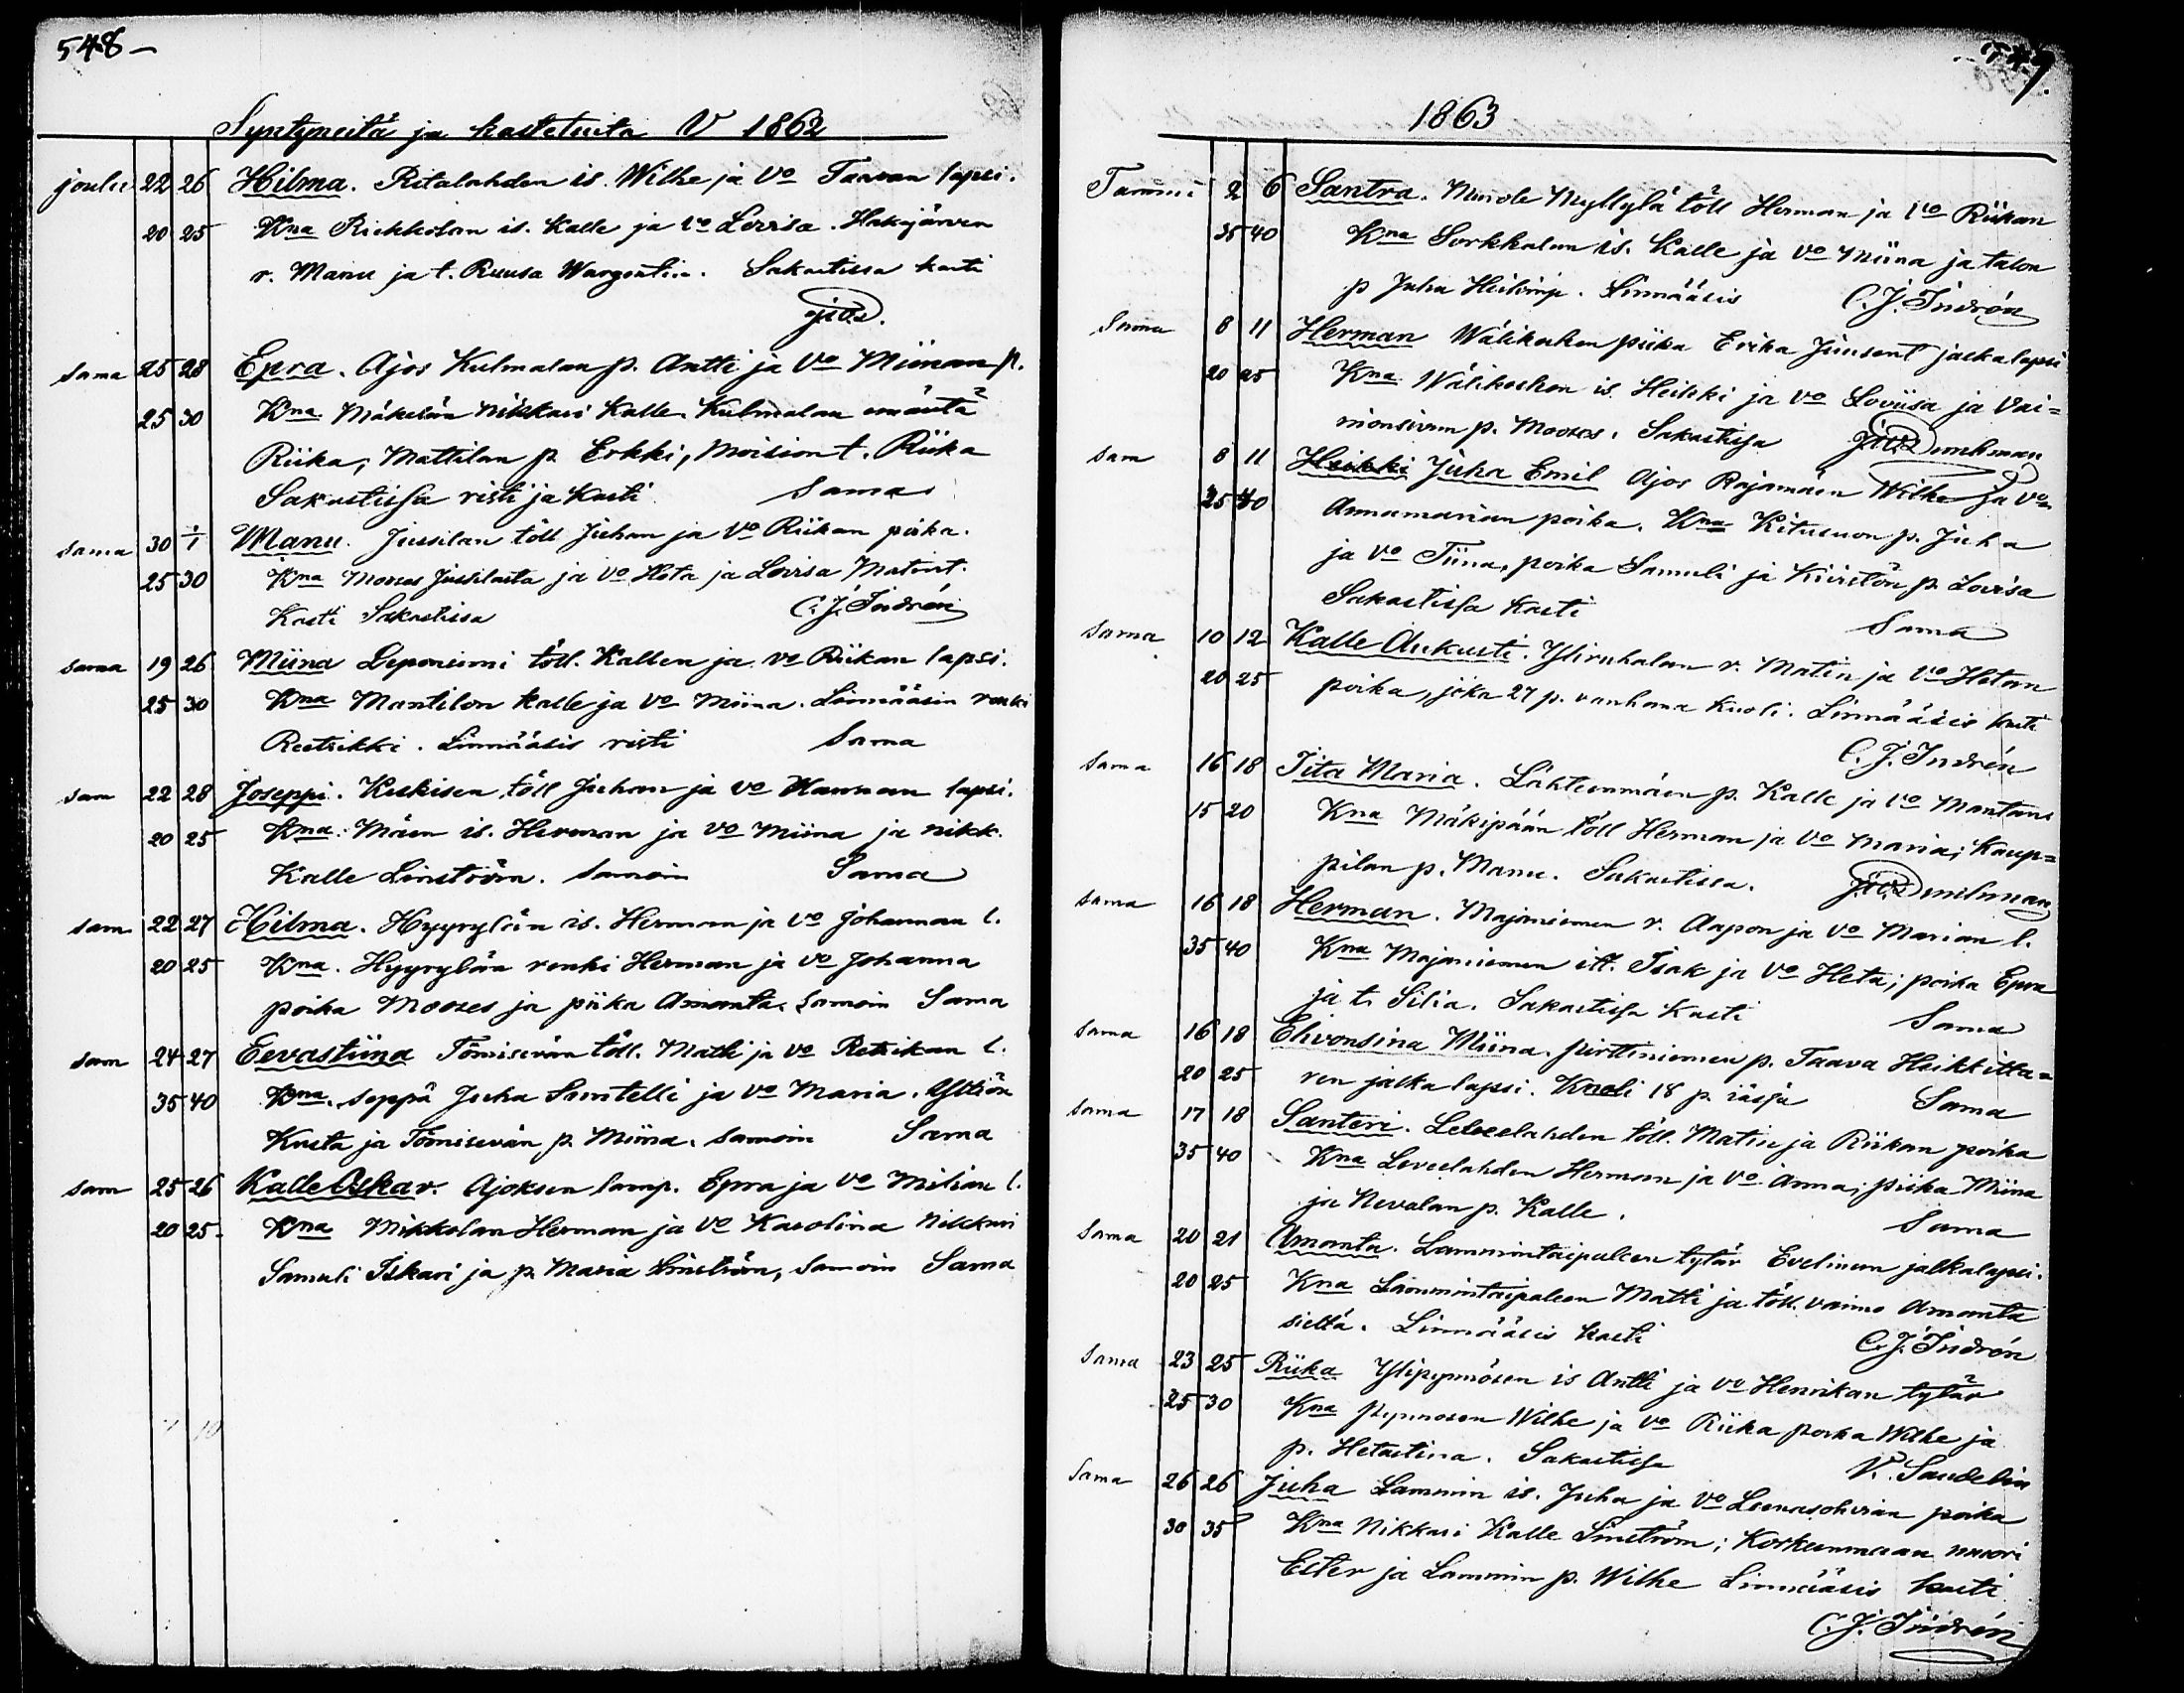 548 –
Syntyneitä ja kastetuita V 1862
joulu 22 26 Hilma. Ritalahden is. Wilhe ja Vo Taavan lapsi.
20 25 Kna Riekkolan is. Kalle ja vo Lovisa. Hakojärven
r. Manu ja t. Ruusa Wargentin. Sakastissa kasti
sama 25 28 Epra. Ajos Kulmalan p. Antti ja Vo Miinan p.
25 30 Kna Mäkelän Nikkari Kalle. Kulmalan emäntä
Riika, Mattilan p. Erkki, Moision t. Riika
Sakastissa risti ja kasti Sama
sama 30 1/1 Manu. Jussilan töll Juhan ja Vo Riikan poika.
25 30 Kna Mooses Jussilasta ja Vo Heta ja Lovisa Matint.
Kasti Sakastissa C. J. Indrén
sama 19 26 Miina Leponiemi töll. Kallen ja vo Riikan lapsi.
25 30 Kna Mantilon Kalle ja Vo Miina. Linnääsin renki
Reetrikki. Linnääsis risti Sama
sam 22 28 Joseppi. Keskisen töll Juhan ja vo Hannan lapsi.
20 25 Kna. Mäen is. Herman ja Vo Miina ja nikk.
Kalle Linström. Samoin Sama
sam 22 27 Hilma. Hyyrylän is. Herman ja Vo Johannan l.
20 25 Kna. Hyyrylän renki Herman ja Vo Johanna
poika Mooses ja piika Amanta. Samoin Sama
sam 24 27 Eevastiina Tömisevän töll. Matti ja Vo Retrikan l.
35 40 Kna. Seppä Juha Santelli ja Vo Maria.
Kusta ja Tömisevän p. Miina. Samoin Sama
sam 25 26 Kalle Oskar. Ajoksen lamp. Epra ja Vo Milian l.
20 25. Kna Mikkolan Herman ja Vo Karolina Nikkari
Samuli Iskari ja p. Maria Linström, Samoin Sama
1863
Tammi 2 6 Santra. Myllylä töll Herman ja Vo Riikan
35 40 Kna Sorkkalan is. Kalle ja Vo Miina ja talon
p Juha Heikinp. Linnääsis C. J. Indrén
Sama 8 11 Herman Wälikosken piika Erika Juusent jalkalapsi
20 25 Kna Wälikosken is. Heikki ja Vo Loviisa ja Vai=
nionsivun p. Mooses. Sakastissa
sam 8 11 Heikki Juha Emil Ajos Rajamäen Wilhe ja Vo
25 30 Annamarian poika. Kna Kitusuon p. Juha
ja Vo Tiina, poika Samuli ja Kivistön p. Lovisa
Sakastissa kasti Sama
sama 10 12 Kalle Aukusti. Yliruhalan r. Matin ja Vo Hetan
20 25 poika, joka 27 p. vanhana kuoli. Linnääsis kasti
C. J. Indrén
sama 16 18 Iita Maria. Lähteenmäen p. Kalle ja Vo Mantans
15 20 Kna Mäkipään töll Herman ja Vo Maria; Kaup=
pilan p. Manu. Sakastissa.
sama 16 18 Herman. Majaniemen r. Aapon ja Vo Marian l.
35 40 Kna Majaniemen itt. Isak ja Vo Heta; poika Epra
ja t. Silia. Sakastissa kasti Sama
sama 16 18 Elvonsina Miina. pirttiniemen p. Taava Heikkitta=
20 25 ren jalkalapsi. Kuoli 18 p. iässä Sama
sama 17 18 Santeri. Leveelahden töll. Matin ja Riikan poika
35 40 Kna Leveelahden Herman ja Vo Anna; piika Miina
ja Nevalan p. Kalle. Sama
Sama 20 21 Amanta. Lammintaipaleen tytär Evelinan jalkalapsi.
20 25 Kna Lammintaipaleen Matti ja töll. vaimo Amanta
sieltä. Linnääsis kasti C. J. Indrén
Sama 23 25 Riika Ylipynnösen is Antti ja Vo Henrikan tytär
25 30 Kna pynnosen Wilhe ja Vo Riika poika Wilhe ja
p. Hetastina. Sakastissa V. Sandelin
Sama 26 26 Juha Lammin is. Juha ja Vo Leenasohvian poika
30 35 Kna Nikkari Kalle Linström; Korkeenmaan nuori
Ester ja Lammin p. Wilhe Linnääsis kasti
C. J. Indrén